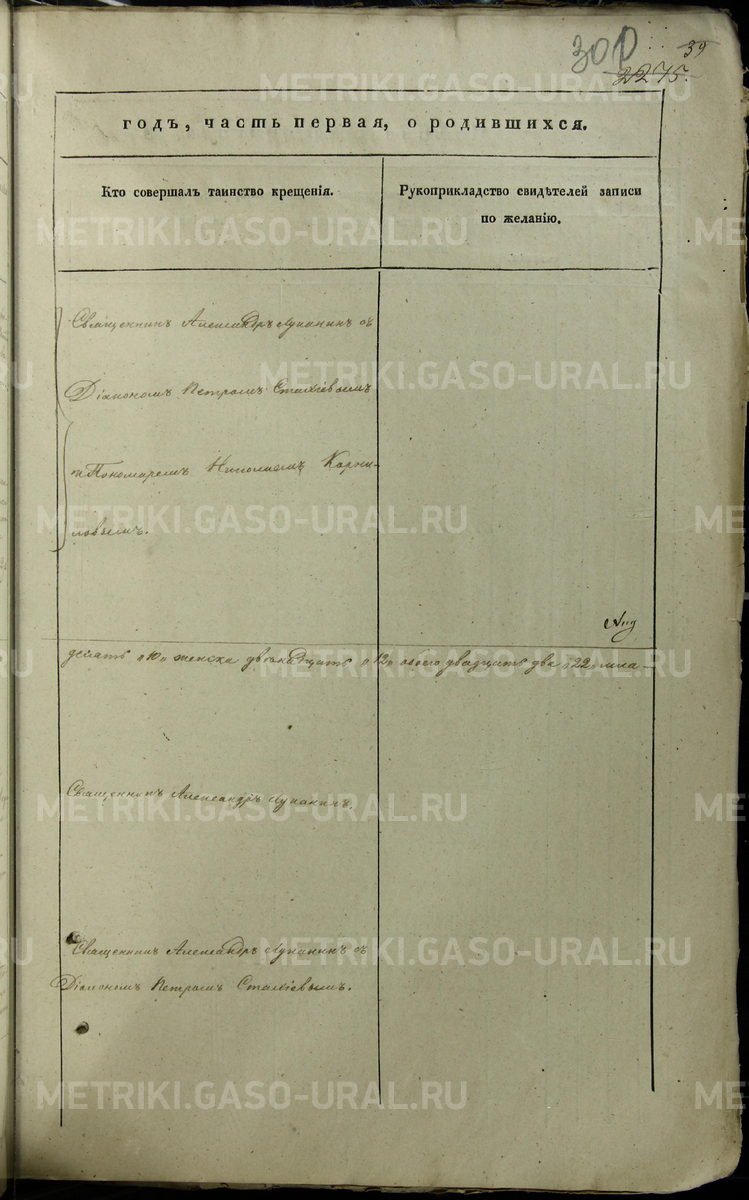 300
39
2275.
годъ, часть первая, о родившихся.
Кто совершалъ таинство крещенія.
Рукоприкладство свидѣтелей записи
по желанію.
Священникъ Александръ Луканинъ съ
Діакономъ Петромъ Стахіевымъ
и Пономаремъ Николаемъ Корни-
ловымъ.
десять "10" женска двенадцать "12" обоего двадцать два "22"
Священникъ Александръ Луканинъ.
Священникъ Александръ Луканинъ съ
Діакономъ Петромъ Стахіевымъ.
METRIKI.GASO-URAL.RU
METRIKI.GASO-URAL.RU
METRIKI.GASO-URAL.RU
METRIKI.GASO-URAL.RU
METRIKI.GASO-URAL.RU
METRIKI.GASO-URAL.RU
METRIKI.GASO-URAL.RU
METRIKI.GASO-URAL.RU